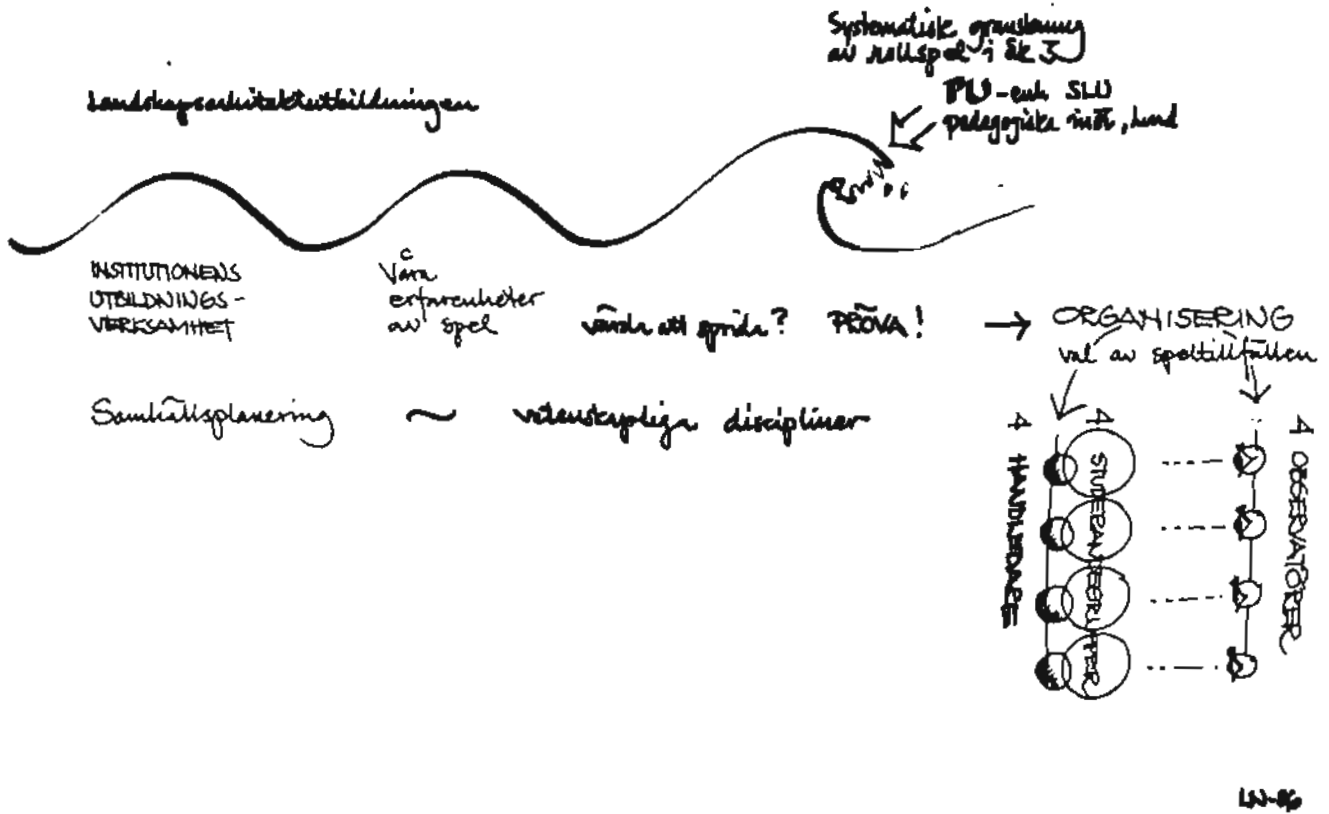 Systematisk granskning
av rollspel i åk 3
PU-enh SLU
pedagogiska inst, Lund
Landskapsarkitektutbildningen
INSTITUTIONENS
UTBILDNINGS-
VERKSAMHET
Våra
erfarenheter
av spel
värda att sprida? PRÖVA!
→ ORGANISERING
val av speltillfällen
Samhällsplanering ~ vetenskapliga discipliner
4 HANDLEDARE
4 STUDERANDEGRUPPER
4 OBSERVATÖRER
LN-86